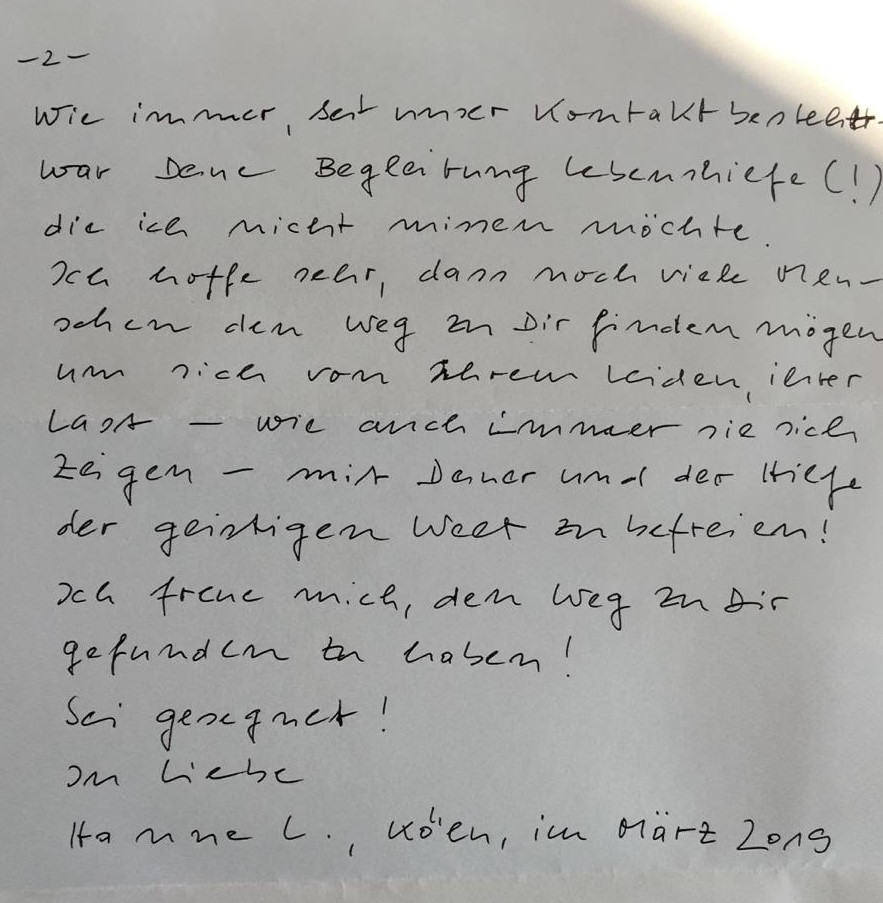 -2-
Wie immer, seit unser Kontakt besteht
war Deine Begleitung Lebenshilfe (!)
die ich nicht missen möchte.
Ich hoffe sehr, dass noch viele Men-
schen den Weg zu Dir finden mögen
um sich von ihrem Leiden, ihrer
Last - wie auch immer sie sich
zeigen - mit Deiner und der Hilfe
der geistigen Welt zu befreien!
Ich freue mich, den Weg zu Dir
gefunden zu haben!
Sei gesegnet!
In Liebe
Hanne L., Köln, im März 2019